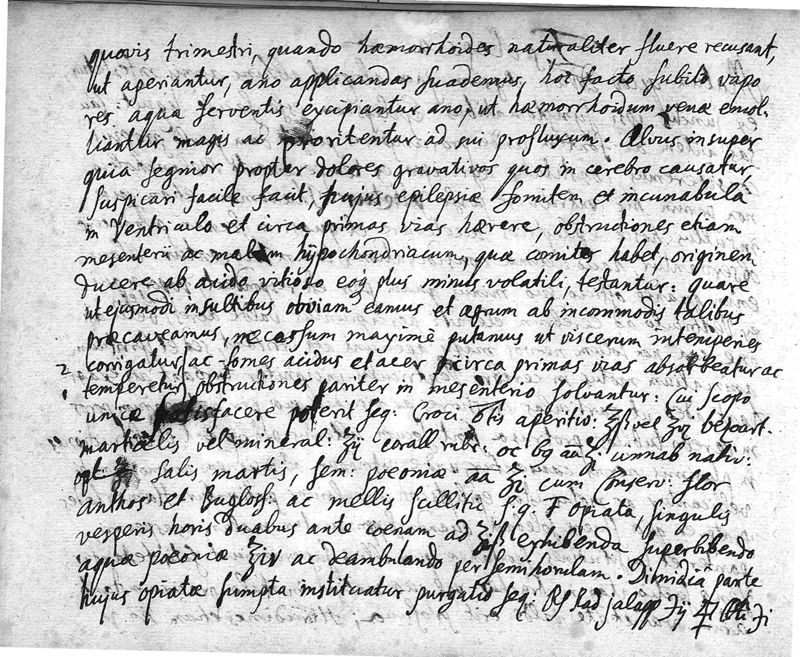 quovis trimestri, quando hæmorrhoides naturaliter fluere recusant,
ut aperiantur, ano applicandas suademus, hoc facto subito vapo
res aquæ ferventis excipiantur ano, ut hæmorrhoidum venæ emol-
liantur magis ac proritentur ad sui profluxum. Alvus insuper
quia segnior propter dolores gravativos quos in cerebro causatur,
suspicari facile facit, hujus epilepsiæ fomitem et incunabula
in ventriculo et circa primas vias hærere, obstructiones etiam
mesenterii ac malum hypochondriacum, quæ comites habet, originem
ducere ab acido vitioso eoq plus minus volatili, testantur: quare
ut ejusmodi insultibus obviam eamus et ægrum ab incommodis talibus
præcaveamus, necessum maximè putamus ut viscerum intemperies
corrigatur, ac fomes acidus et acer circa primas vias absorbeatur ac
2
temperetur, obstructiones pariter in mesenterio solvantur: Cui scopo
1
unicæ satisfacere poterit seq: Croci ♂tis aperitiv: ʒß vel ʒvj bezoart.
martialis vel mineral: ʒij corall rubr: oc āā ʒj. cinnab nativ:
opt salis martis, sem: pœoniæ āā ʒj cum Conserv: flor
anthos et Bugloss: ac mellis scillitic s.q. F opiata, singulis
vesperis horis duabus ante cœnam ad ʒß exhibenda superbibendo
aquæ pœoniæ ℥iv ac deambulando per semihorulam. Dimidiâ parte
hujus opiatæ sumpta instituatur purgatio seq: ℞ rad jalapp ℈ij ℈i